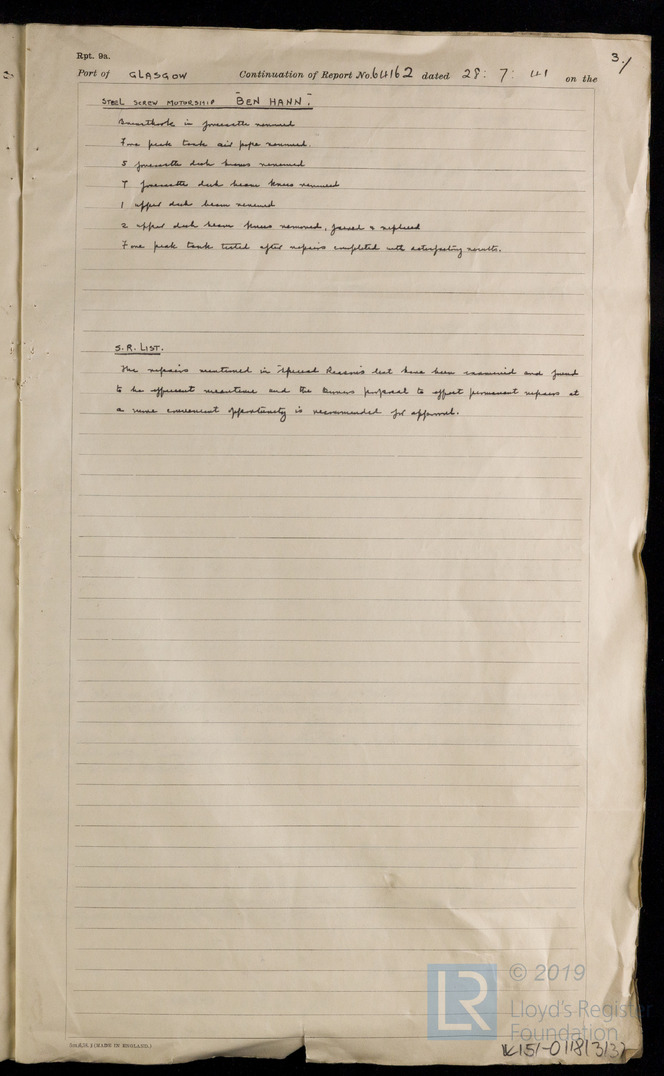 Rpt. 9a.
3./
Port of GLASGOW Continuation of Report No. 64162 dated 28 : 7 : 41 on the
STEEL SCREW MOTORSHIP "BEN HANN".
Breasthook in forecastle renewed
Fore peak tank air pipe renewed.
5 forecastle deck beams renewed
7 forecastle deck beam knees renewed
1 upper deck beam renewed
2 upper deck beam knees removed, faired & replaced
Fore peak tank tested after repairs completed with satisfactory results.
S.R. LIST.
The repairs mentioned in "Special Reasons" list have been examined and found
to be efficient meantime and the Owners proposal to effect permanent repairs at
a more convenient opportunity is recommended for approval.
(MADE IN ENGLAND.)
LR
© 2019
Lloyd's Register
Foundation